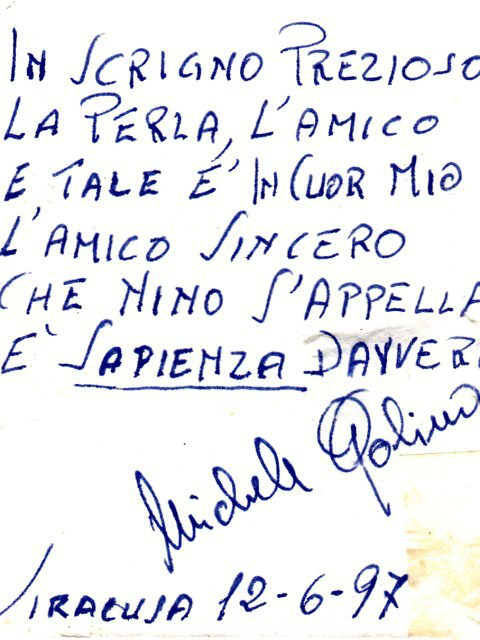 IN SCRIGNO PREZIOSO
LA PERLA, L'AMICO
E TALE E' IN CUOR MIO
L'AMICO SINCERO
CHE NINO S'APPELLA
E' SAPIENZA DAVVER
Michele
SIRACUSA 12-6-97